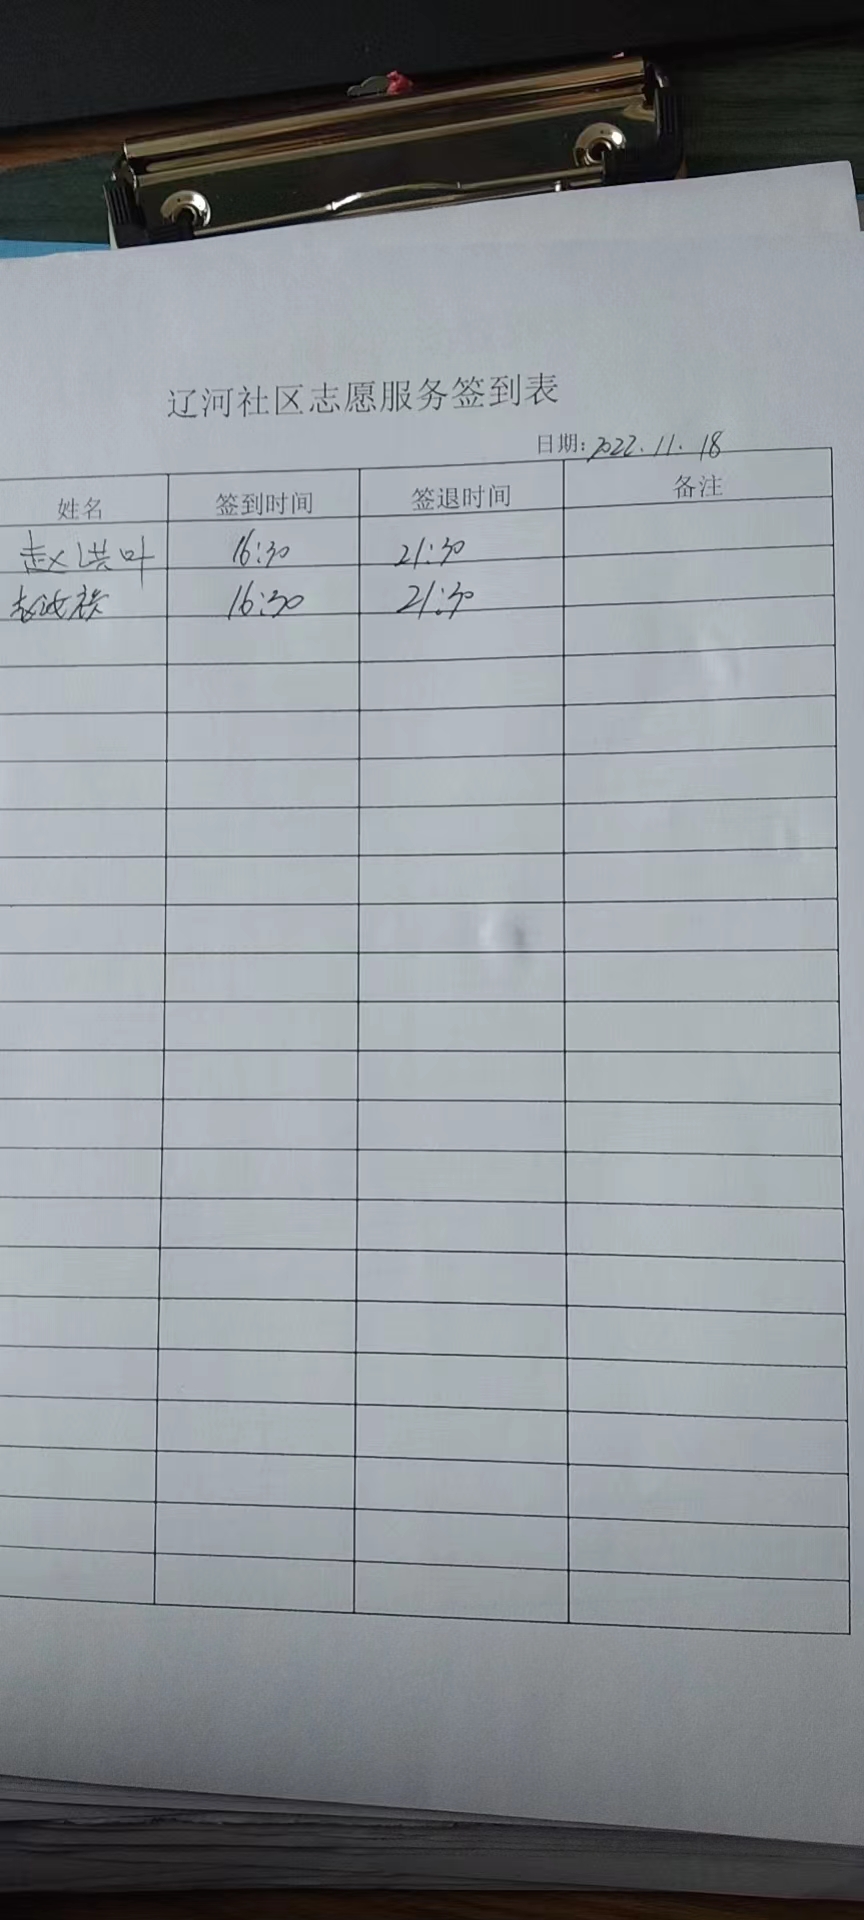 辽河社区志愿服务签到表
日期: 2022.11.18
姓名 签到时间 签退时间 备注
赵洪叶 16:30 21:30
16:30 21:30